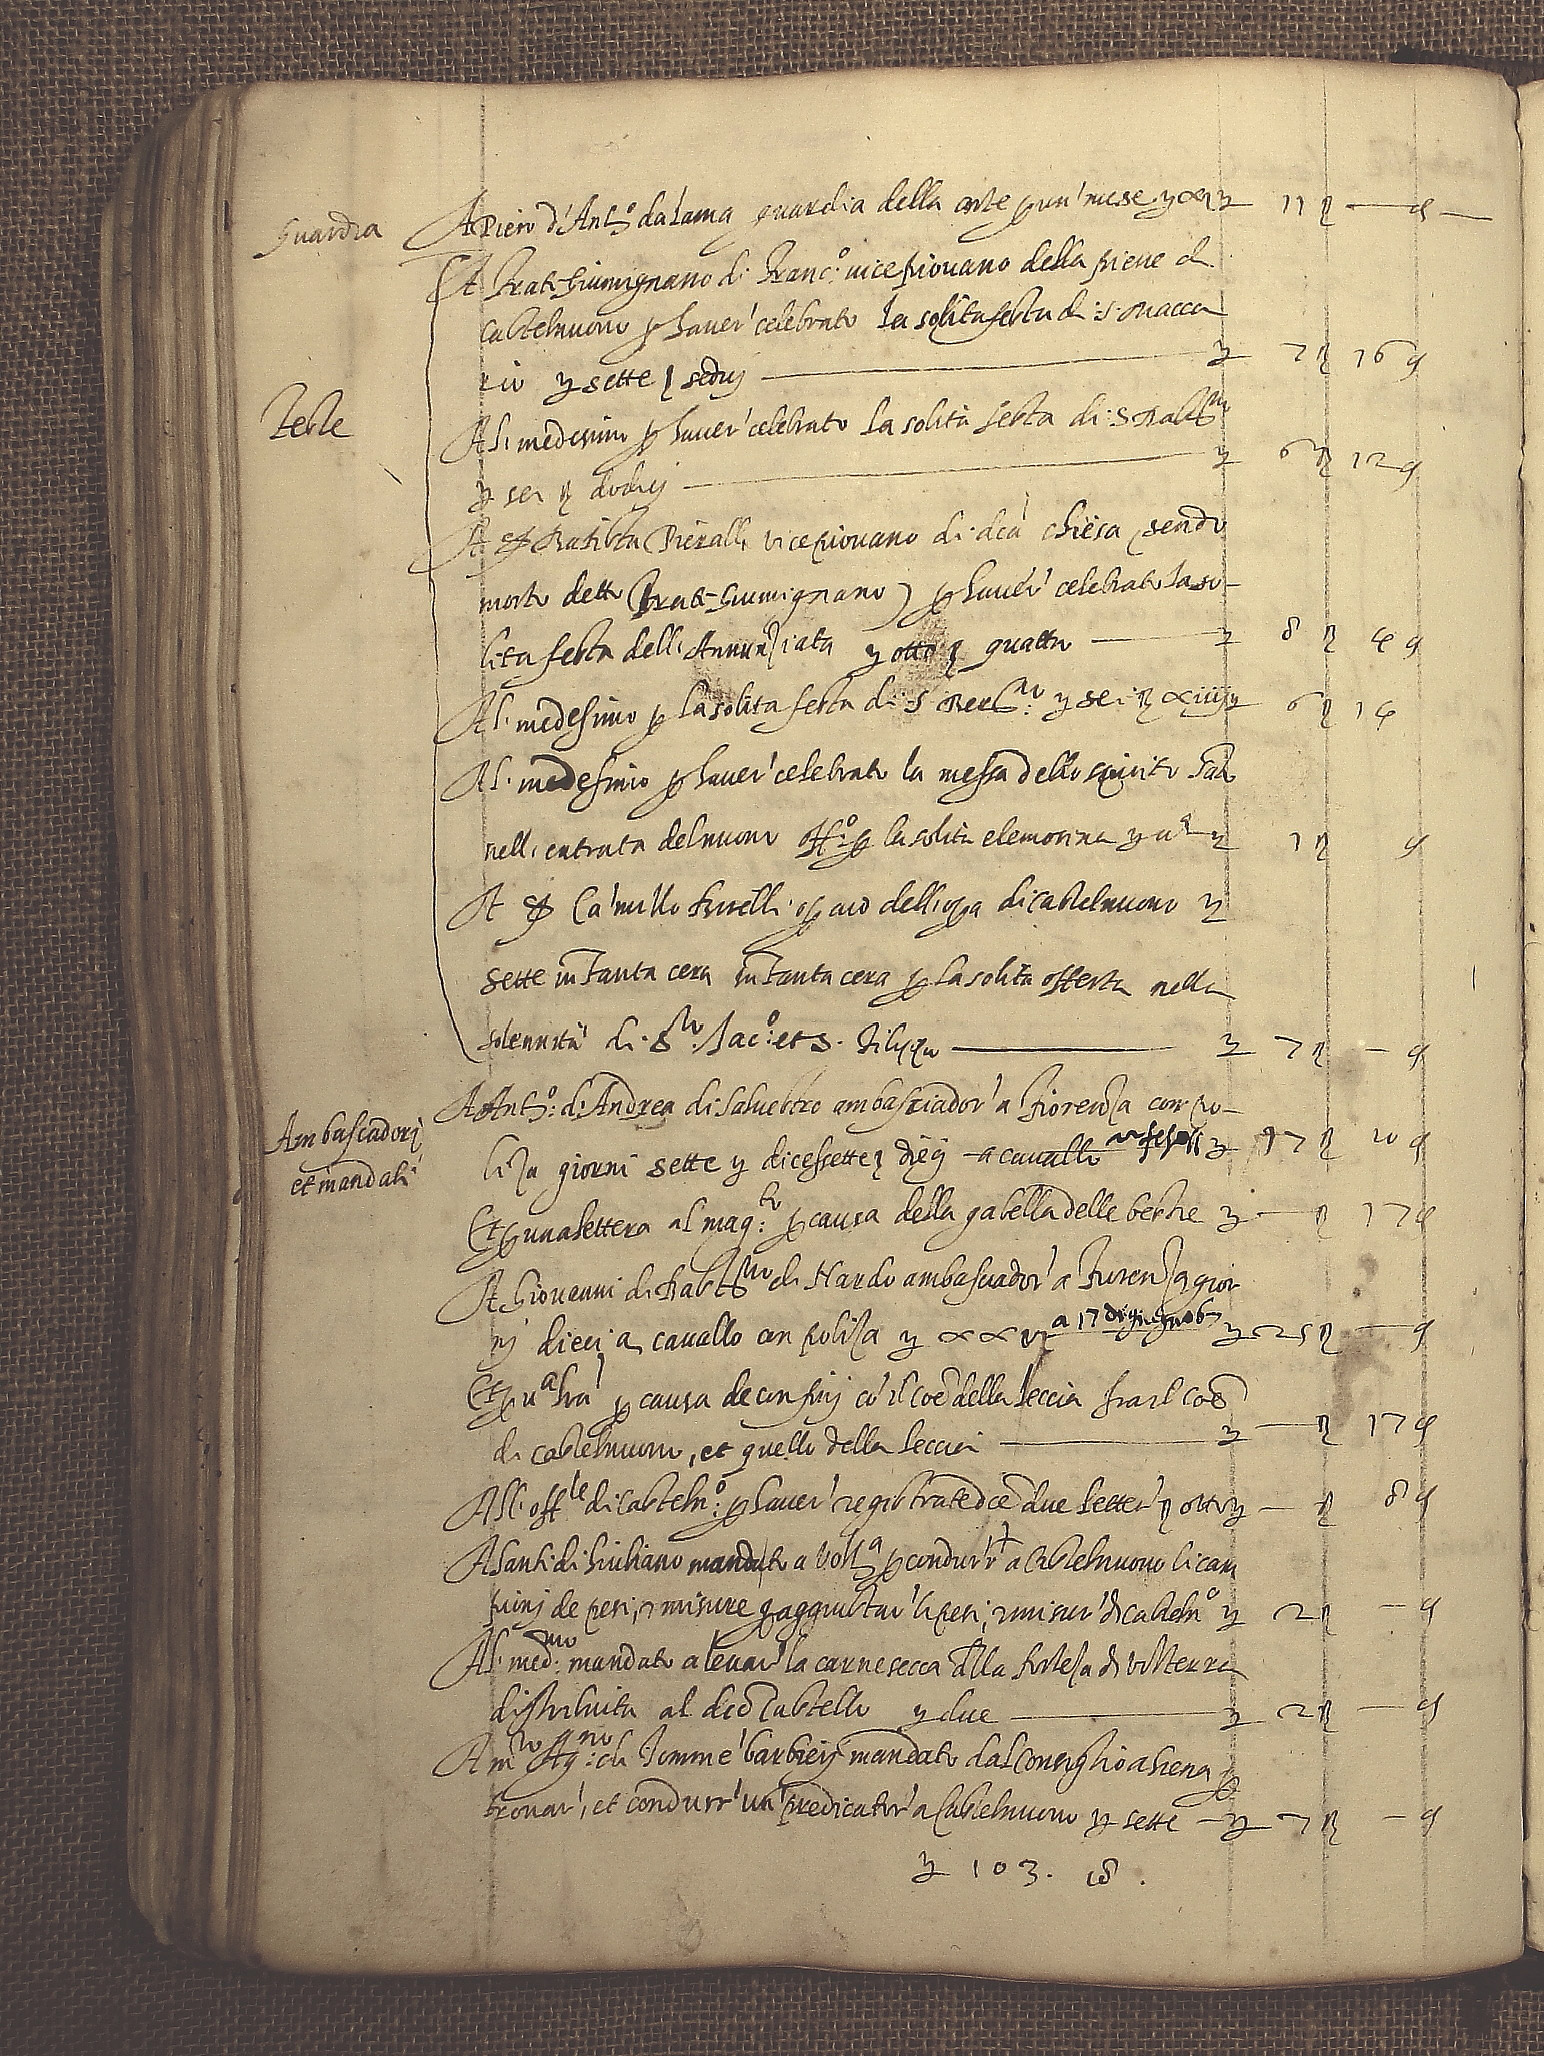 Guardia
A Piero d'Ant.o da Lama guardia della corte p un' mese 11 —
A Frate Giumignano di Franc.o vicepiovano della pieve di
castelnuovo p haver' celebrato la solita festa di S. Macca
rio sette sedici 7 16
Feste
Al medesimo p haver' celebrato la solita festa di S.
sei dodici 6 12
A Batista Pieralli vicepiovano di dca' chiesa (sendo
morto detto Frate Giumignano) p haver' celebrato la so-
lita festa dell' Annuntiata otto quattro 8 4
Al medesimo p la solita festa di S. sei xiiij 6 14
Al medesimo p haver' celebrato la messa dello spirito
nell' entrata del nuovo p la solita elemosina 1
A Camillo dell' opa di castelnuovo
sette in tanta cera in tanta cera p la solita offerta nella
solennità di S. Jac.o et S. Filippo 7 —
Ambasciadori
et mandati
A Ant.o di Andrea di Salvestro ambasciador' a Fiorenza con po-
liza giorni sette dicessette dieci a cavallo 17 10
Et p una lettera al mag.to p causa della gabella delle bestie — 17 4
A Giovanni di di Nardo ambasciador' a Fiorenza gior
nj dieci a cavallo con poliza a 17 di giugno 67 25 —
Et p u.a p causa de confinj co' il coe della Leccia fra il coe
di castelnuovo, et quello della Leccia — 17 4
All' off.le di Casteln.o p haver' registrate dce due letter' otto — 8
A Santi di Giuliano mandato a p condurr' a Castelnuovo li cam
pionj de pesi, misure p aggiustar' li pesi, misur' di casteln.o 2 —
Al med.mo mandato a levar' la carne secca alla forteza di volterra
distribuita al dco Castello due 2 —
A m.ro di Tomme' barbierj mandato dal Consiglio a Siena p
trovar', et condurr' un' predicator' a Castelnuovo sette 7 —
103.